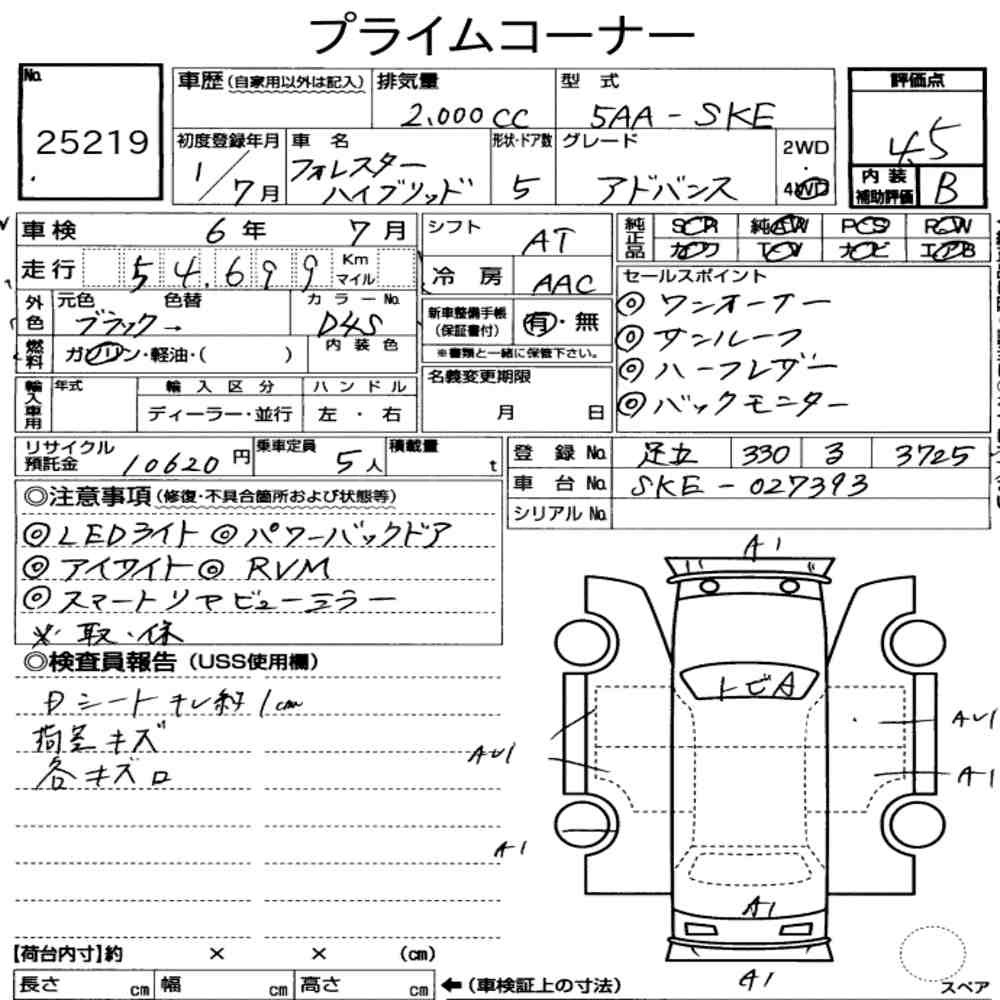 プライムコーナー
No. 25219
車歴 (自家用以外は記入) 排気量 2,000cc 型式 5AA-SKE 評価点 4.5
初度登録年月 1/7月 車名 フォレスター ハイブリッド 形状・ドア数 5 グレード アドバンス 2WD・4WD 内装補助評価 B
車検 6年 7月 シフト AT 純正品 SR 純AW PS PW
走行 54,699 Km マイル 冷房 AAC カワ TV ナビ エアB
外色 元色 ブラック→ 色替 カラーNo. D4S
燃料 ガソリン・軽油・( ) 内装色
新車整備手帳 (保証書付) 有・無
※書類と一緒に保管下さい。
セールスポイント
◎ワンオーナー
◎サンルーフ
◎ハーフレザー
◎バックモニター
輸入車用 年式 輸入区分 ディーラー・並行 ハンドル 左・右
名義変更期限 月 日
リサイクル預託金 10620円 乗車定員 5人 積載量 t
登録No. 足立 330 3725
車台No. SKE-027393
シリアルNo.
◎注意事項 (修復・不具合箇所および状態等)
◎LEDライト ◎パワーバックドア
◎アイサイト ◎RVM
◎スマートリヤビューミラー
※取・保
◎検査員報告 (USS使用欄)
Dシートキレ約1cm
荷室キズ
各キズ
A1
トビA
AU1
AU1
A1
A1
A1
A1
【荷台内寸】約 × × (cm)
長さ cm 幅 cm 高さ cm ←(車検証上の寸法)
スペア